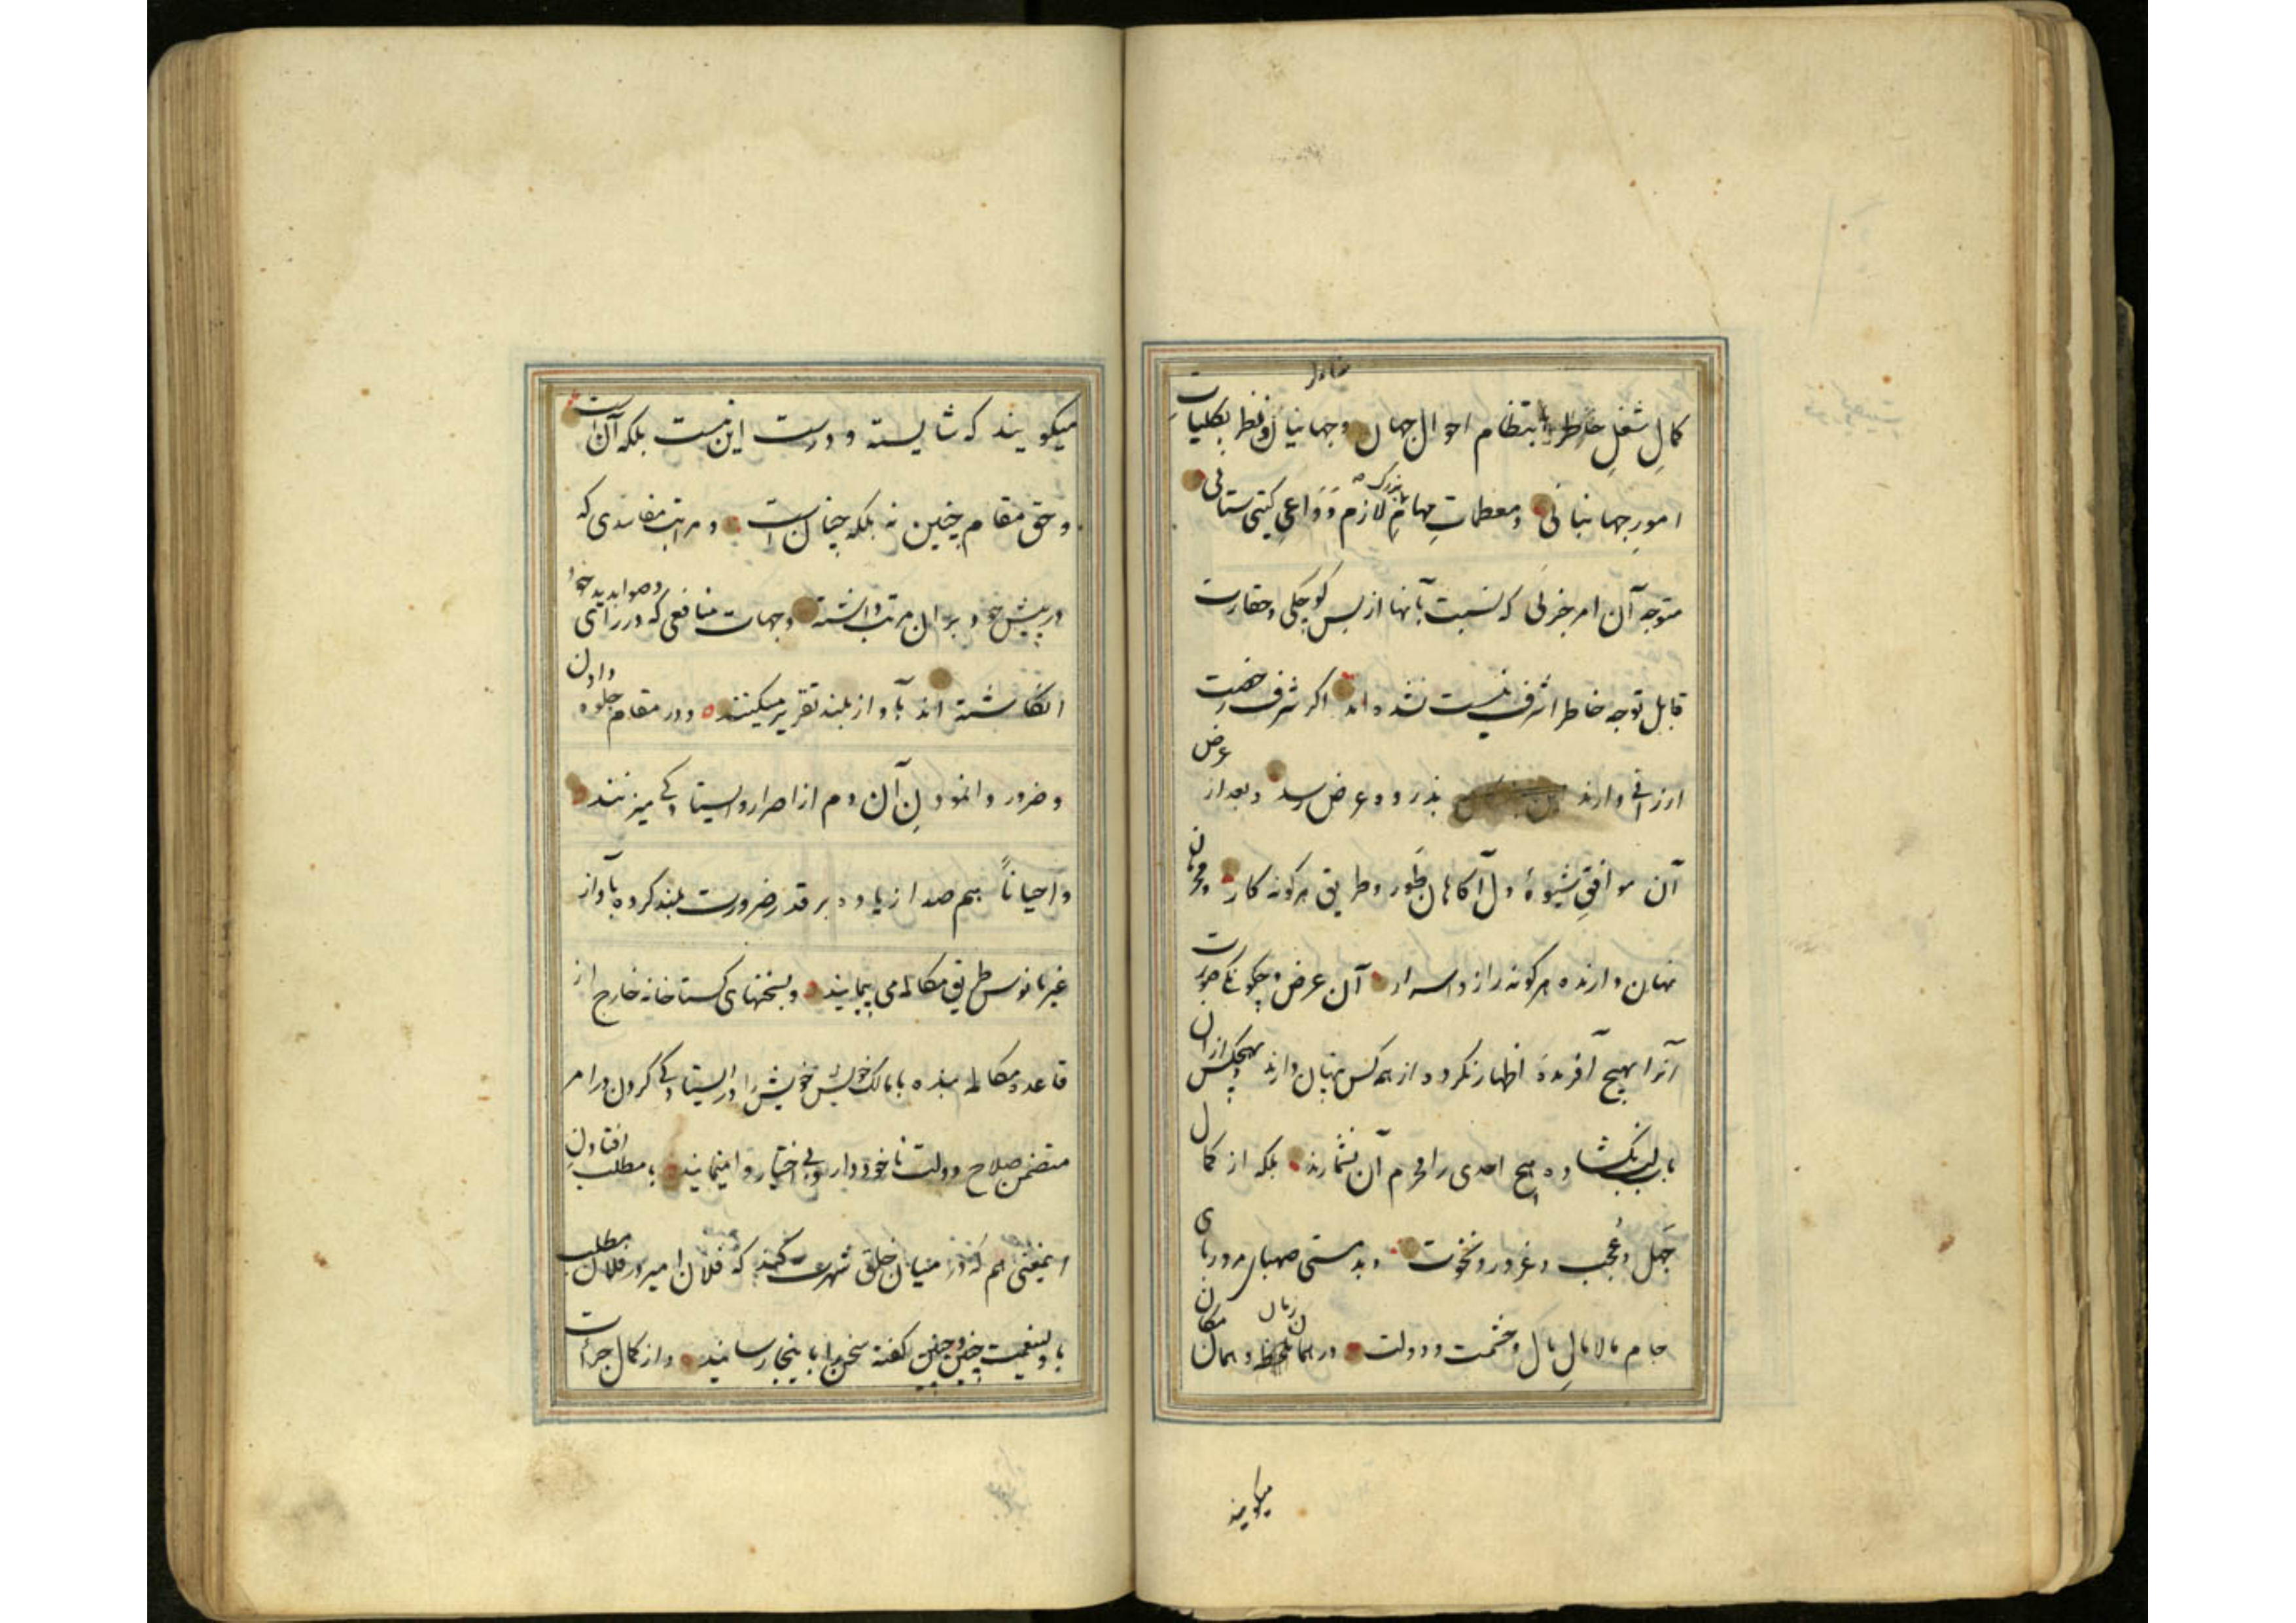 کمال شغل خاطر بانتظام احوال جهان و جهانیان و نظر بکلیات
امورِ جهانبانی و معظمات مهام بزرگ لازم و دواعی کیتی ستانی
متوجه آن امر جزئی که نسبت بآنها از بس کوچکی و حقارت
قابل توجه خاطر اشرف نیست نشده اند اکر شرف رخصت
ارزانی دارند بذروه عرض رسد و بعد از عرض
آن موافقِ شیوهٔ دل آکاهان طور و طریق هرکونه کار و محرمان
نهان دارنده هرکونه راز و اسرار آن عرض و چکونکی صورت
آنرا بهیچ آفریدهٔ اظهار نکرده از همه کس پنهان دارند و بهیچکس ازان
باب لب نکشاده هیچ احدی را محرم آن نشمارند بلکه از کمال
جهل و عُجب و غرور و نخوت و بدمستی صهبای مردربای
جام مالامالِ مال و حشمت و دولت در همان زمان و همان مکان
میکویند
میکویند که شایسته و درست این نیست بلکه آن است
و حق مقام چنین نه بلکه چنان است و مراتب مفاسدی که
در پیش خود بران مرتب دانسته و جهات منافعی که در رای و صوابدید خود
انکاشته اند بآواز بلند تقریر میکنند و در مقام جلوه دادن
و ضرور وانمودنِ آن دم از اصرار و ایستادکی میزنند
و احیاناً بهم صدا زیاده بر قدر ضرورت بلند کرده بآواز
غیر مانوس طریق مکالمه می پیمایند و بسخنهای کستاخانه خارج از
قاعده مکالمه بنده با مالک خویش خویش را در ایستادکی کردن در امر
متضمن صلاح دولت ناخوددار و بی اختیار وامینمایند با مطلب افتادن
اینمعنی هم که در میان خلق شهرت کند که فلان امیر در فلان مطلب
با ولینعمت چنین و چنین کفته سخن را باینجا رسانید و از کمال جرأت